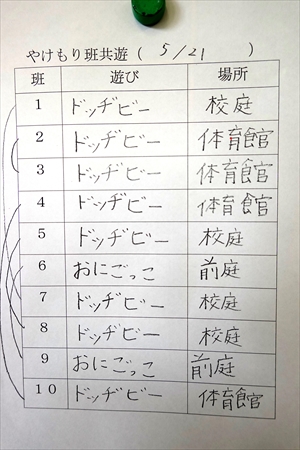 やけもり班共遊（ 5/21 ）
班 遊び 場所
1 ドッヂビー 校庭
2 ドッヂビー 体育館
3 ドッヂビー 体育館
4 ドッヂビー 体育館
5 ドッヂビー 校庭
6 おにごっこ 前庭
7 ドッヂビー 校庭
8 ドッヂビー 校庭
9 おにごっこ 前庭
10 ドッヂビー 体育館